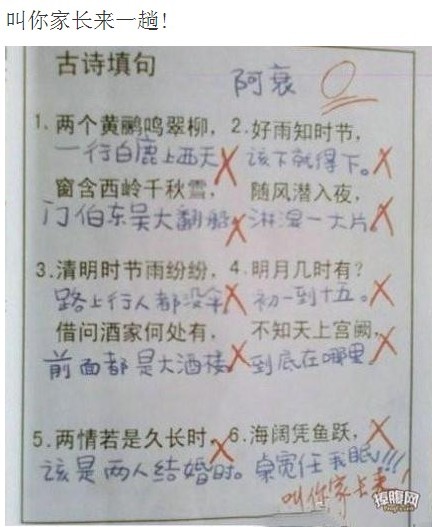 叫你家长来一趟!
古诗填句
阿衰 0
1. 两个黄鹂鸣翠柳, 2. 好雨知时节,
一行白鹿上西天 该下就得下。
窗含西岭千秋雪, 随风潜入夜,
门伯东吴大翻船 淋湿一大片
3. 清明时节雨纷纷, 4. 明月几时有?
路上行人都没伞 初一到十五。
借问酒家何处有, 不知天上宫阙,
前面都是大酒楼 到底在哪里
5. 两情若是久长时, 6. 海阔凭鱼跃,
该是两人结婚时。 桌宽任我眠!!!
叫你家长来!
捧腹网